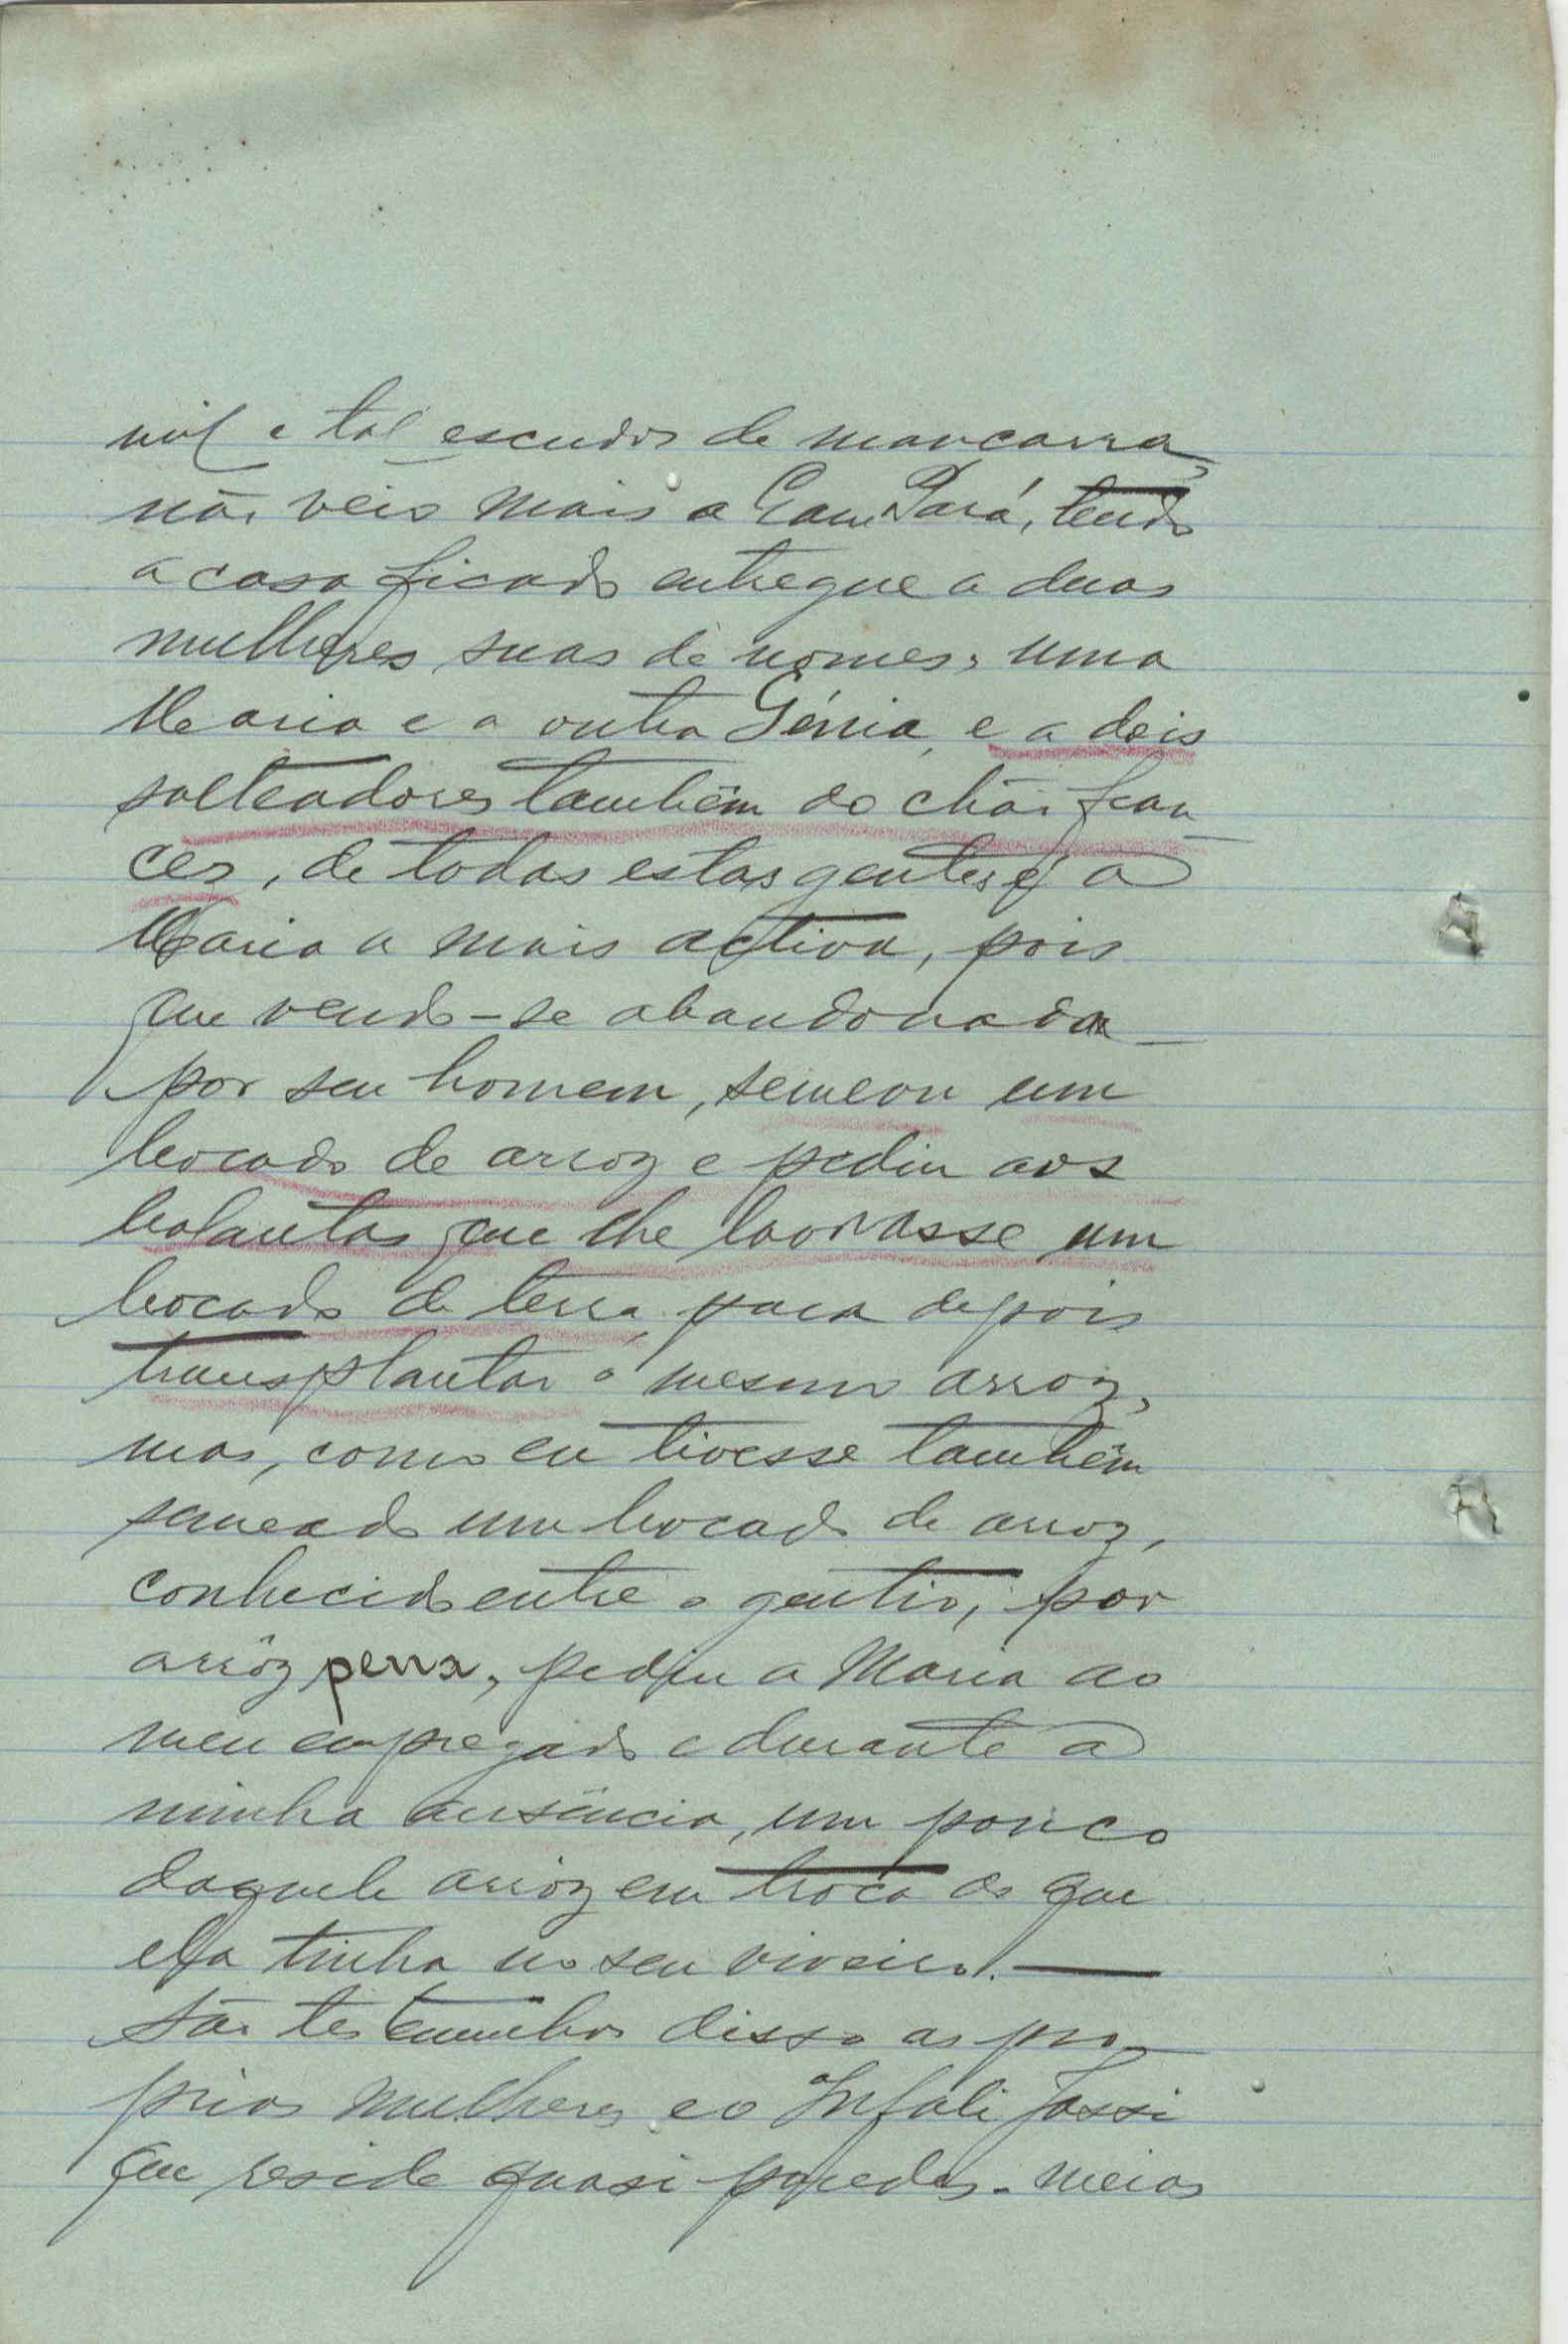 mil e tal escudos de mancarra,
não veio mais a Gam Pará, tendo
a casa ficado entregue a duas
mulheres suas de nomes, uma
Maria e a outra Génia, e a dois
salteadores também do chão fran
cês, de todas estas gentes é a
Maria a mais activa, pois
que vendo-se abandonada
por seu homem, semeou um
bocado de arroz e pediu aos
balantas que lhe lavrasse um
bocado de terra, para depois
transplantar o mesmo arroz,
mas, como eu tivesse também
semeado um bocado de arroz,
conhecido entre o gentio, por
arrôz penna, pediu a Maria ao
meu empregado e durante a
minha ausência, um pouco
daquele arroz em troca do que
ela tinha no seu viveiro. —
São testemunhos disso as pro-
prias mulheres e o Infali Jassi
que reside quasi paredes-meias